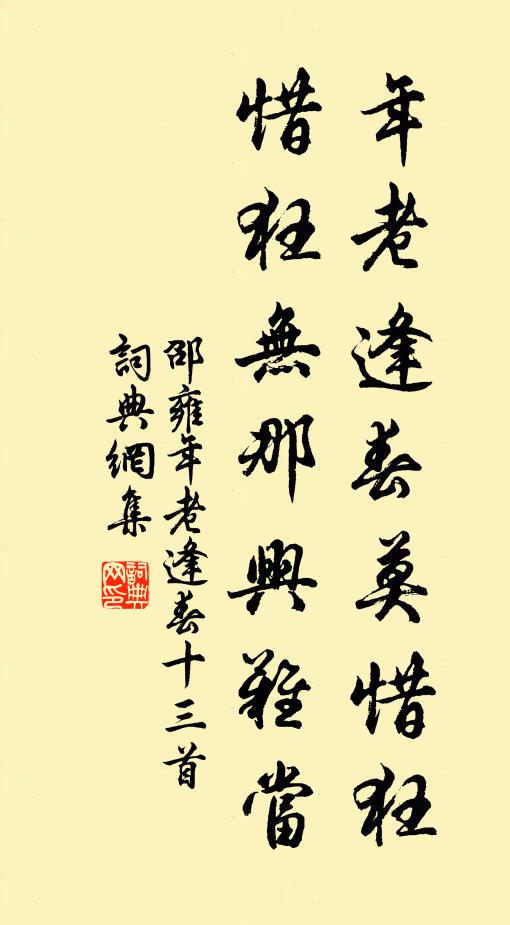 年老逢春莫惜狂
惜狂無那興難當
邵雍年老逢春十三首
詞典網集
詞典网印